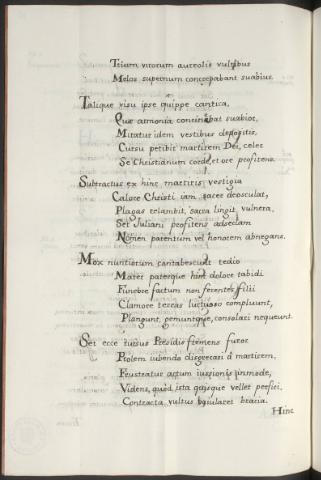 Trium virorum aureolis vultibus
Melos supernum concrepabant suavius.
Talique visu ipse quippe cantica,
Quæ armonia concinebat suabior,
Mitatur idem vestibus depositis,
Cursu petibit martirem Dei, celer
Se Christianum corde, et ore profitens.
Subtractus ex hinc martiris vestigia
Calore Christi iam sacer deosculat,
Plagas relambit, sacra lingit vulnera,
Set Juliani profitens adseclam
Nomen parentum vel honorem abnegans.
Mox nuntiorum contabescunt tedio
Mater paterque hinc dolore tabidi
Funebre factum non ferentes filii
Clamore terras luctuoso compluunt,
Plangunt, gemuntque, consolari nequeunt.
Set ecce rursus Presidis fremens furor
Prolem iubendo disgregari a martirem,
Frustratur actum iussionis inmode,
Videns, quod ista quisque vellet perfici,
Contracta vultus baiularet bracia.
Hinc